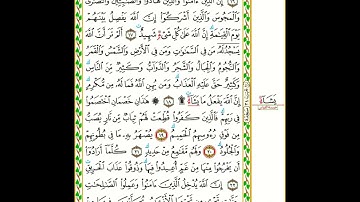 إِنَّ ٱلَّذِينَ ءَامَنُوا۟ وَٱلَّذِينَ هَادُوا۟ وَٱلصَّٰبِـِٔينَ وَٱلنَّصَٰرَىٰ
وَٱلْمَجُوسَ وَٱلَّذِينَ أَشْرَكُوٓا۟ إِنَّ ٱللَّهَ يَفْصِلُ بَيْنَهُمْ
يَوْمَ ٱلْقِيَٰمَةِ إِنَّ ٱللَّهَ عَلَىٰ كُلِّ شَىْءٍ شَهِيدٌ ١٧ أَلَمْ تَرَ أَنَّ ٱللَّهَ
يَسْجُدُ لَهُۥ مَن فِى ٱلسَّمَٰوَٰتِ وَمَن فِى ٱلْأَرْضِ وَٱلشَّمْسُ وَٱلْقَمَرُ
وَٱلنُّجُومُ وَٱلْجِبَالُ وَٱلشَّجَرُ وَٱلدَّوَآبُّ وَكَثِيرٌ مِّنَ ٱلنَّاسِ
وَكَثِيرٌ حَقَّ عَلَيْهِ ٱلْعَذَابُ وَمَن يُهِنِ ٱللَّهُ فَمَا لَهُۥ مِن مُّكْرِمٍ
إِنَّ ٱللَّهَ يَفْعَلُ مَا يَشَآءُ ١٨ هَٰذَانِ خَصْمَانِ ٱخْتَصَمُوا۟
يَشَآءُ
فِى رَبِّهِمْ فَٱلَّذِينَ كَفَرُوا۟ قُطِّعَتْ لَهُمْ ثِيَابٌ مِّن نَّارٍ يُصَبُّ
مِن فَوْقِ رُءُوسِهِمُ ٱلْحَمِيمُ ١٩ يُصْهَرُ بِهِۦ مَا فِى بُطُونِهِمْ
وَٱلْجُلُودُ ٢٠ وَلَهُم مَّقَٰمِعُ مِنْ حَدِيدٍ ٢١ كُلَّمَآ أَرَادُوٓا۟
أَن يَخْرُجُوا۟ مِنْهَا مِنْ غَمٍّ أُعِيدُوا۟ فِيهَا وَذُوقُوا۟ عَذَابَ ٱلْحَرِيقِ
٢٢ إِنَّ ٱللَّهَ يُدْخِلُ ٱلَّذِينَ ءَامَنُوا۟ وَعَمِلُوا۟ ٱلصَّٰلِحَٰتِ